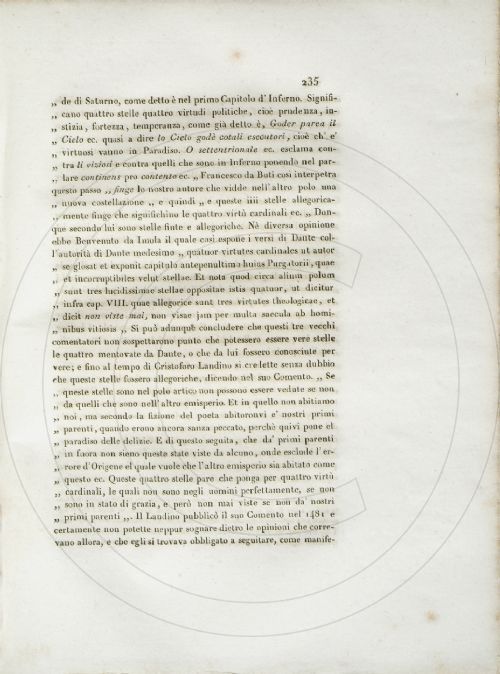 235
„ de di Saturno, come detto è nel primo Capitolo d' Inferno. Signifi-
„ cano quattro stelle quattro virtudi politiche, cioè prudenza, in-
„ stizia, fortezza, temperanza, come già detto è, Goder parea il
„ Cielo ec. quasi a dire lo Cielo godè cotali escutori, cioè ch' e'
„ virtuosi vanno in Paradiso. O settentrionale ec. esclama con-
„ tra li viziosi e contra quelli che sono in Inferno ponendo nel par-
„ lare continens pro contento ec. „ Francesco da Buti così interpetra
questo passo „ finge lo nostro autore che vidde nell'altro polo una
„ nuova costellazione „ e quindi „ e queste iiii stelle allegorica-
„ mente finge che significhino le quattro virtù cardinali ec. „ Dun-
que secondo lui sono stelle finte e allegoriche. Nè diversa opinione
ebbe Benvenuto da Imola il quale così espone i versi di Dante col-
l'autorità di Dante medesimo „ quatuor virtutes cardinales ut autor
„ se glosat et exponit capitulo antepenultimo huius Purgatorii, quae
„ et incorruptibiles velut stellae. Et nota quod circa alium polum
„ sunt tres lucidissime stellae oppositae istis quatuor, ut dicitur
„ infra cap. VIII. quae allegorice sunt tres virtutes theologicae, et
„ dicit non viste mai, non visae jam per multa saecula ab homi-
„ nibus vitiosis „ Si può adunque concludere che questi tre vecchi
comentatori non sospettarono punto che potessero essere vere stelle
le quattro mentovate da Dante, o che da lui fossero conosciute per
vere; e fino al tempo di Cristoforo Landino si credette senza dubbio
che queste stelle fossero allegoriche, dicendo nel suo Comento. „ Se
„ queste stelle sono nel polo artico non possono essere vedute se non
„ da quelli che sono nell'altro emisperio. Et in quello non abitiamo
„ noi, ma secondo la fizione del poeta abitoronvi e' nostri primi
„ parenti, quando erono ancora sanza peccato, perchè quivi pone el
„ paradiso delle delizie. E di questo seguita, che da' primi parenti
„ in fuora non sieno queste state viste da alcuno, onde esclude l'er-
„ rore d'Origene el quale vuole che l'altro emisperio sia abitato come
„ questo ec. Queste quattro stelle pare che ponga per quattro virtù
„ cardinali, le quali non sono negli uomini perfettamente, se non
„ sono in stato di grazia, e però non mai viste se non da' nostri
„ primi parenti „. Il Landino pubblicò il suo Comento nel 1481 e
certamente non potette neppur sognare dietro le opinioni che corre-
vano allora, e che egli si trovava obbligato a seguitare, come manife-